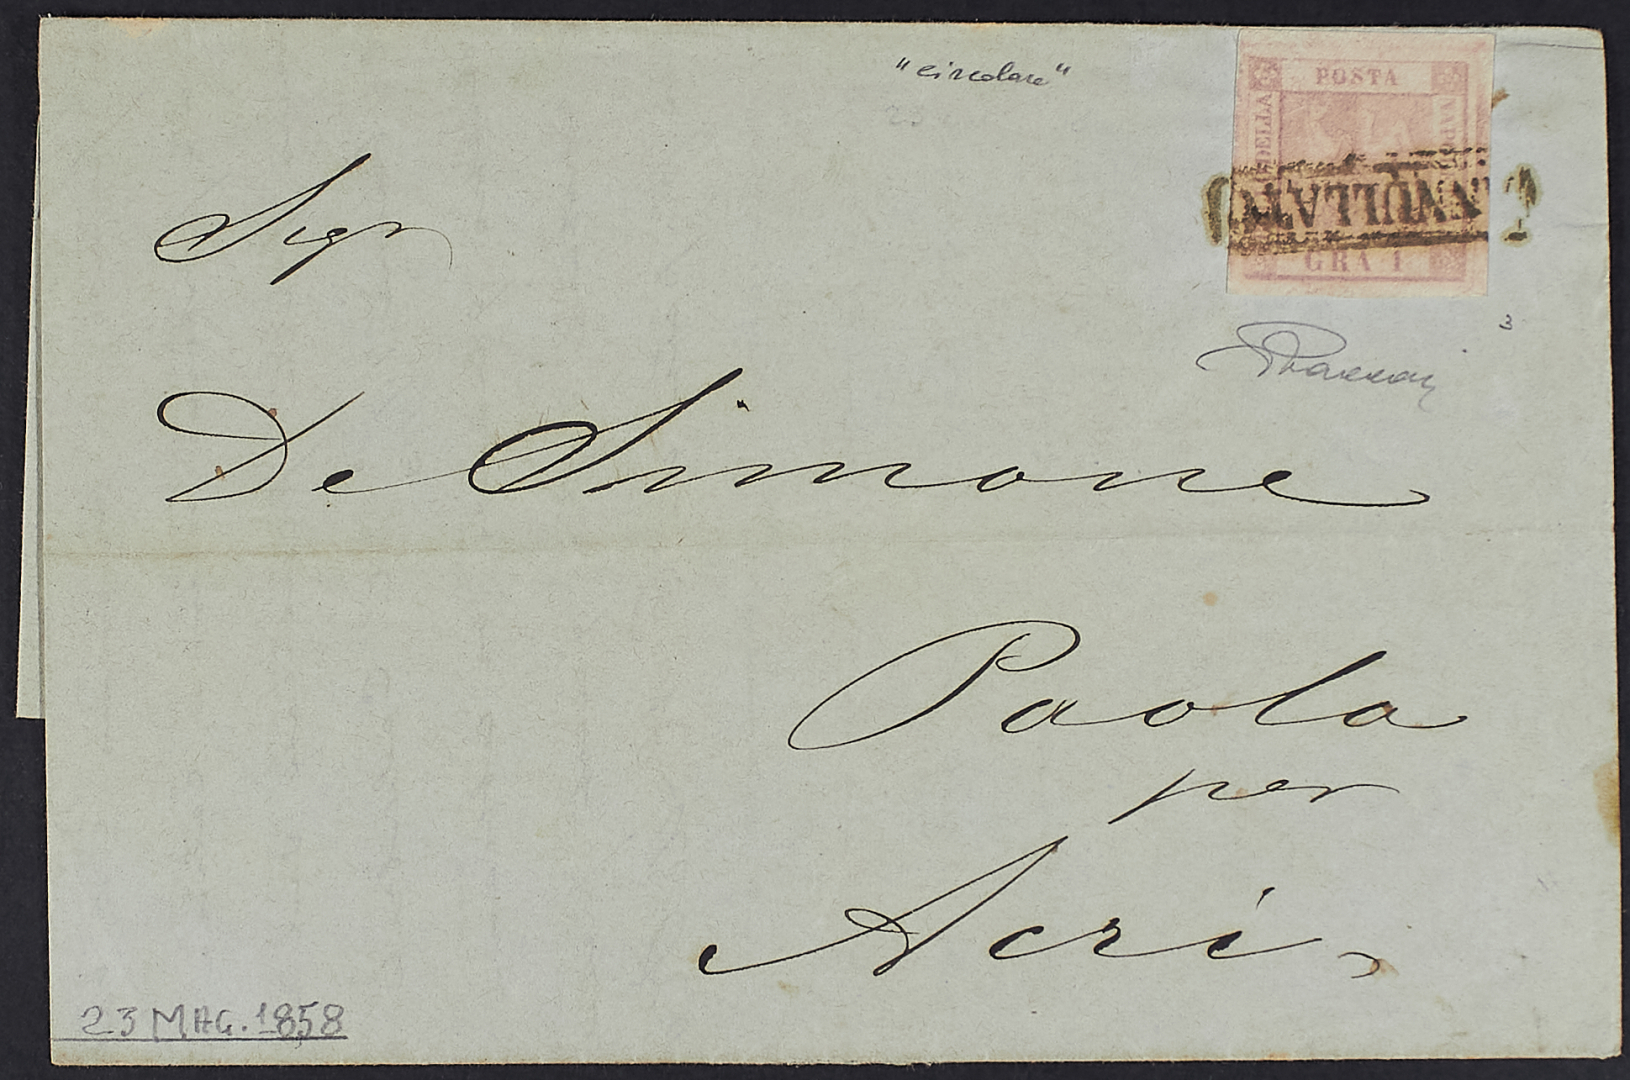 "circolare"
POSTA
DELLA
NAPO
ANNULLATO
GRA 1
3
Sigr
De Simone
Paola
per
Acri
23 MAG. 1858